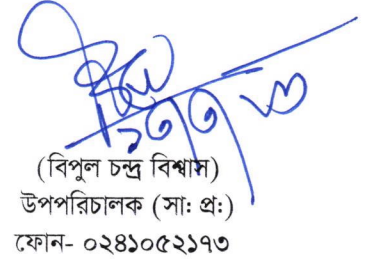 (বিপুল চন্দ্র বিশ্বাস)
উপপরিচালক (সা: প্র:)
ফোন- ০২৪১০৫২১৭৩